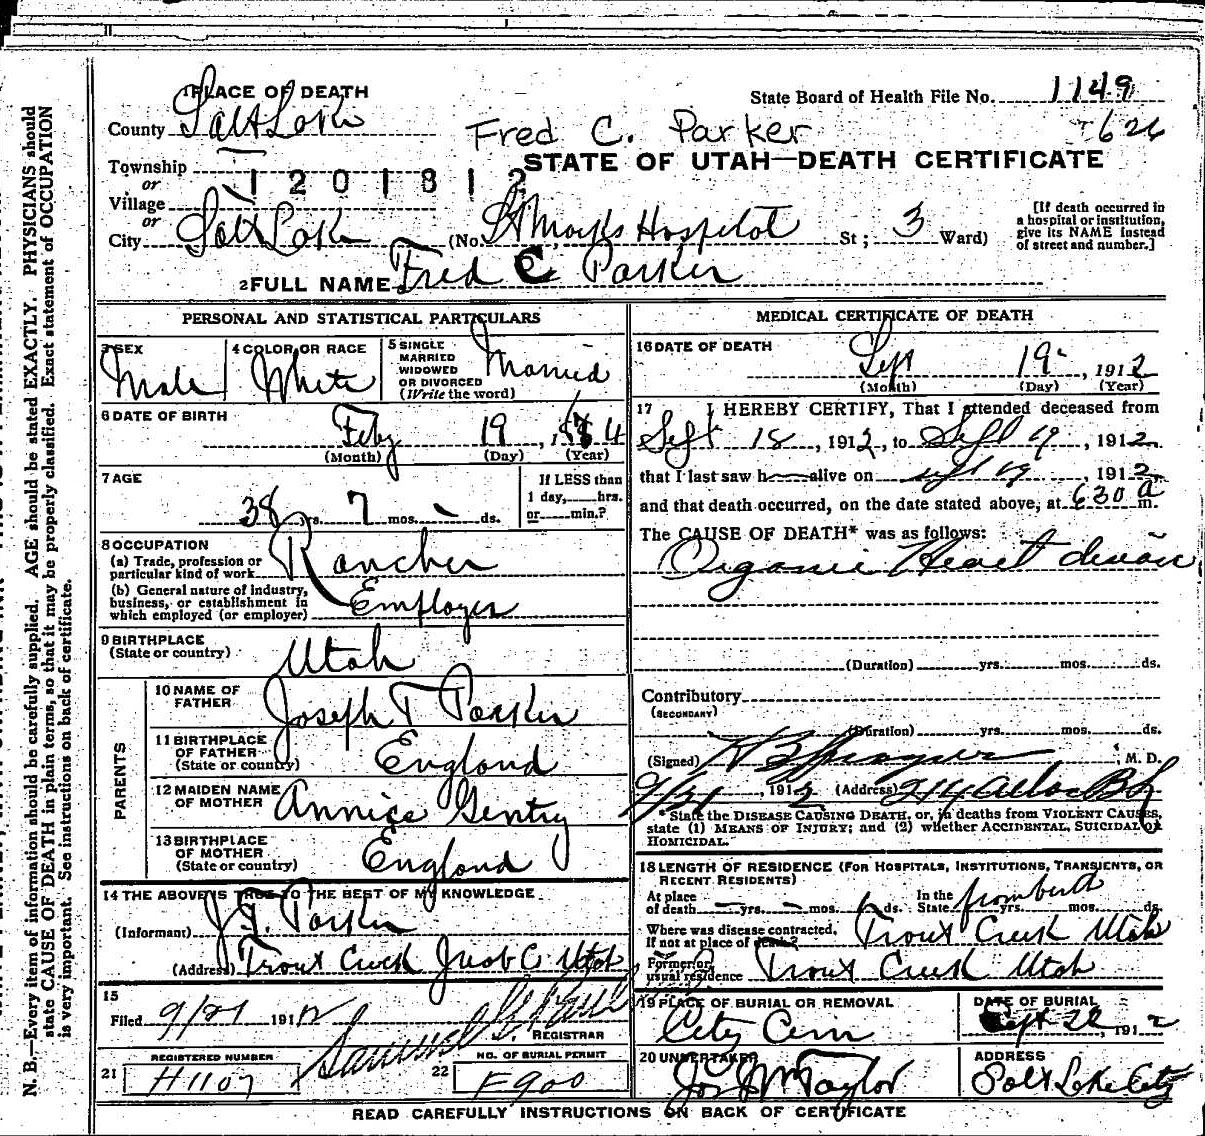 1 PLACE OF DEATH
County Salt Lake
State Board of Health File No. 1149
626
Fred C. Parker
STATE OF UTAH—DEATH CERTIFICATE
Township
or
1201812
Village
or
City Salt Lake (No. St Marks Hospital St; 3 Ward)
[If death occurred in
a hospital or institution,
give its NAME instead
of street and number.]
2 FULL NAME Fred C Parker
PERSONAL AND STATISTICAL PARTICULARS
3 SEX
Male
4 COLOR OR RACE
White
5 SINGLE
MARRIED
WIDOWED
OR DIVORCED
(Write the word)
Married
6 DATE OF BIRTH
Feby 19, 4
(Month) (Day) (Year)
7 AGE
38 yrs. 7 mos. - ds.
If LESS than
1 day, hrs.
or min.?
8 OCCUPATION
(a) Trade, profession or
particular kind of work Rancher
(b) General nature of industry,
business, or establishment in
which employed (or employer) Employer
9 BIRTHPLACE
(State or country)
Utah
PARENTS
10 NAME OF
FATHER
Joseph T Parker
11 BIRTHPLACE
OF FATHER
(State or country)
England
12 MAIDEN NAME
OF MOTHER
Annice Gentry
13 BIRTHPLACE
OF MOTHER
(State or country)
England
14 THE ABOVE IS TRUE TO THE BEST OF MY KNOWLEDGE
(Informant) J. T. Parker
(Address) Trout Creek Juab C Utah
15
Filed 9/21 1912
Samuel G. Paul
REGISTRAR
REGISTERED NUMBER
21 H1107
NO. OF BURIAL PERMIT
22 F900
MEDICAL CERTIFICATE OF DEATH
16 DATE OF DEATH
Sept 19, 1912
(Month) (Day) (Year)
17 I HEREBY CERTIFY, That I attended deceased from
Sept 18, 1912, to Sept 19, 1912
that I last saw h alive on Sept 19, 1912
and that death occurred, on the date stated above, at 630 a m.
The CAUSE OF DEATH* was as follows:
Organic Heart disease
(Duration) yrs. mos. ds.
Contributory
(SECONDARY)
(Duration) yrs. mos. ds.
(Signed) H B Sprague, M. D.
9/21, 1912 (Address) 214 Atlas Blk
* State the DISEASE CAUSING DEATH, or, in deaths from VIOLENT CAUSES,
state (1) MEANS OF INJURY; and (2) whether ACCIDENTAL, SUICIDAL OR
HOMICIDAL.
18 LENGTH OF RESIDENCE (FOR HOSPITALS, INSTITUTIONS, TRANSIENTS, OR
RECENT RESIDENTS)
At place
of death - yrs. - mos. 6 ds.
In the
State yrs. mos. ds.
from birth
Where was disease contracted,
If not at place of death?
Trout Creek Utah
Former or
usual residence Trout Creek Utah
19 PLACE OF BURIAL OR REMOVAL
City Cem
DATE OF BURIAL
Sept 22, 1912
20 UNDERTAKER
Jos Wm Taylor
ADDRESS
Salt Lake City
READ CAREFULLY INSTRUCTIONS ON BACK OF CERTIFICATE
N. B.—Every item of information should be carefully supplied. AGE should be stated EXACTLY. PHYSICIANS should
state CAUSE OF DEATH in plain terms, so that it may be properly classified. Exact statement of OCCUPATION
is very important. See instructions on back of certificate.